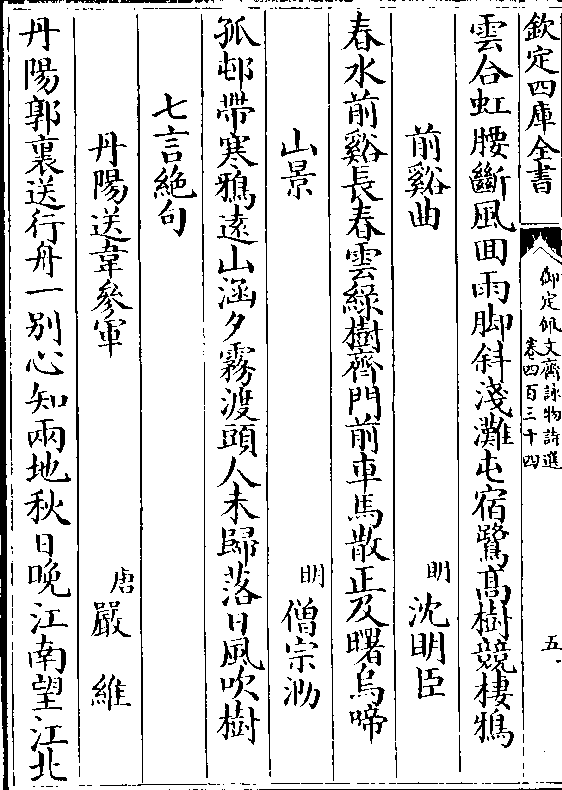 欽定四庫全書
御定佩文齋詠物詩選
卷四百三十四
五
雲合虹腰斷風回雨脚斜淺灘屯宿鷺髙樹競棲鴉
前谿曲
明
沈明臣
春水前谿長春雲綠樹齊門前車馬散正及曙烏啼
山景
明
僧宗泐
孤邨帶寒鴉遠山涵夕霧渡頭人未歸落日風吹樹
七言絶句
丹陽送韋參軍
唐
嚴維
丹陽郭裏送行舟一别心知兩地秋日晚江南望江北